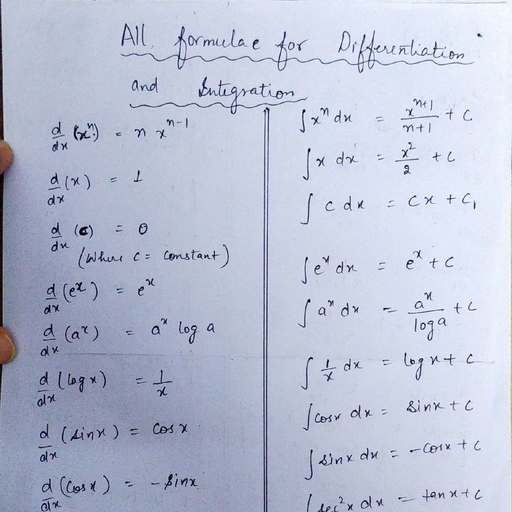 All formulae for Differentiation
and Integration
d/dx (xⁿ) = n xⁿ⁻¹
d/dx (x) = 1
d/dx (c) = 0
(Where c = constant)
d/dx (eˣ) = eˣ
d/dx (aˣ) = aˣ log a
d/dx (log x) = 1/x
d/dx (sin x) = cos x
d/dx (cos x) = - sin x
∫ xⁿ dx = xⁿ⁺¹/n+1 + c
∫ x dx = x²/2 + c
∫ c dx = cx + c₁
∫ eˣ dx = eˣ + c
∫ aˣ dx = aˣ/log a + c
∫ 1/x dx = log x + c
∫ cosx dx = sinx + c
∫ sinx dx = -cosx + c
∫ sec²x dx = tanx + c